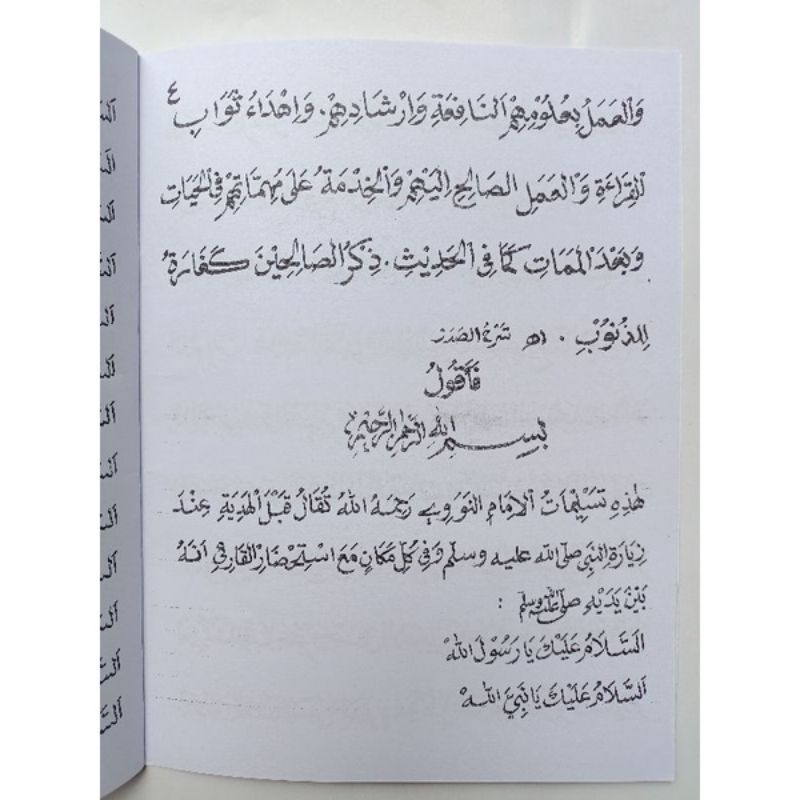 ٤
وَالْعَمَلُ بِعُلُوْمِهِمْ اَلنَّافِعَةِ وَاِرْشَادِهِمْ. وَاِهْدَاءُ ثَوَابِ
الْقِرَاءَةِ وَالْعَمَلِ الصَالِحِ اِلَيْهِمْ وَالْخِدْمَةُ عَلَى مُهِمَّاتِهِمْ فِى الْحَيَاتِ
وَبَعْدَ الْمَمَاتِ كَمَا فِى الْحَدِيْثِ. ذِكْرُ الصَّالِحِيْنَ كَفَارَةُ
لِلذُنُوْبِ. اه شَرْحُ الصَدْرُ
فَأَقُوْلُ
بِسْمِ اللهِ الرَّحْمٰنِ الرَّحِيْمِ
هٰذِهِ تَسْلِيْمَاتُ اَلْاِمَامِ النَّوَوِي رَحِمَهُ اللهُ تُقَالُ قَبْلَ الْهَدِيَةِ عِنْدَ
زِيَارَةِ النَّبِىِّ صلى الله عليه وسلم وَفِى كُلِّ مَكَانٍ مَعَ اسْتِحْضَارِ الْقَارِئِ اَنَّهُ
بَيْنَ يَدَيْهِ صلى الله عليه وسلم :
اَلسَّلَامُ عَلَيْكَ يَا رَسُوْلَ اللهْ
اَلسَّلَامُ عَلَيْكَ يَا نَبِيَّ اللهْ